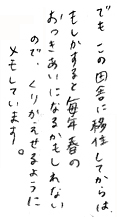 でもこの田舎に移住してからは、
もしかすると毎年春の
おつきあいになるかもしれない
ので、くりかえせるように
メモしています。